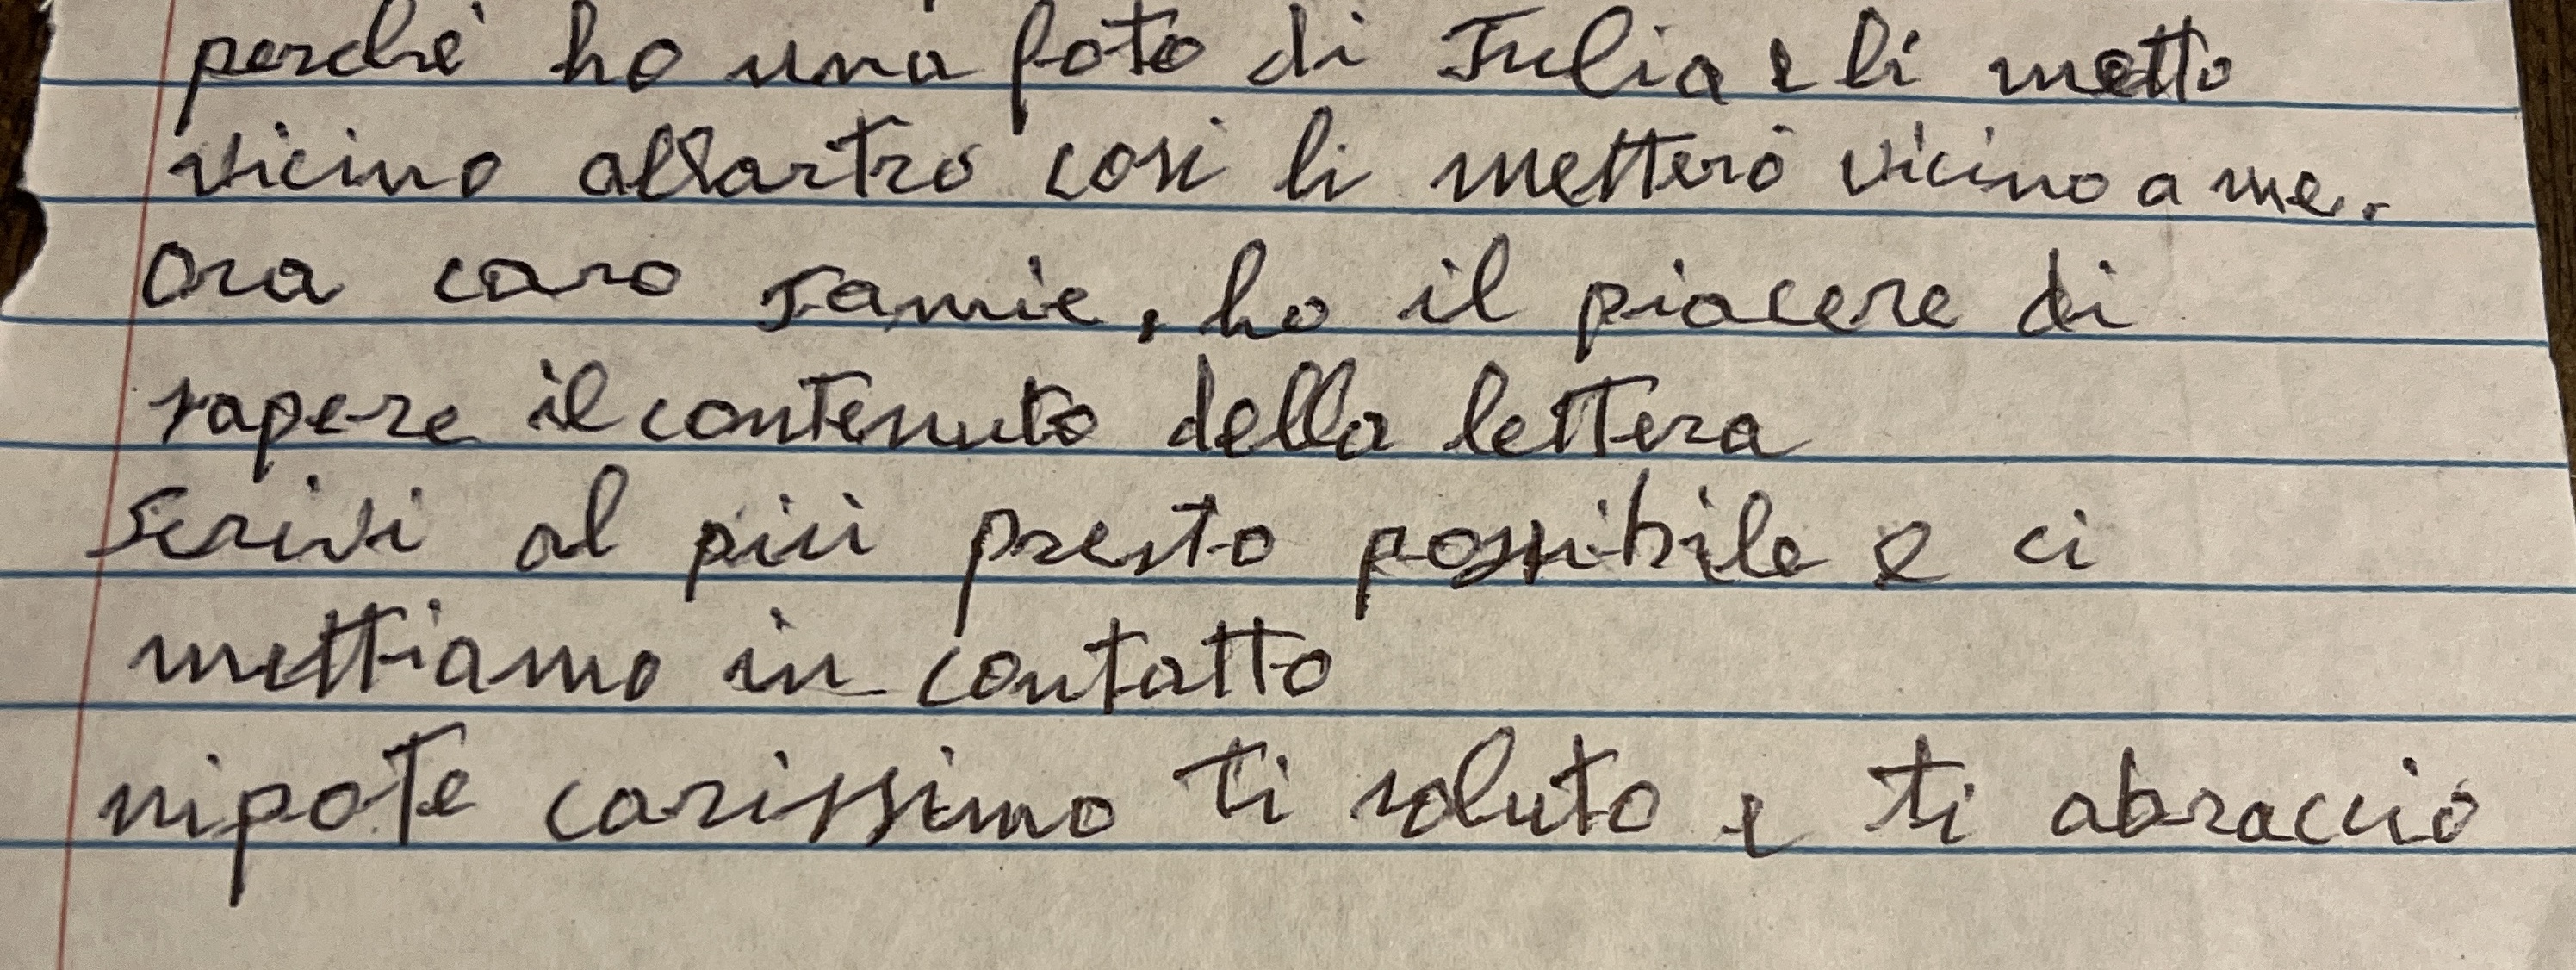 perchè ho una foto di Julia e li metto
vicino all'artro cosi li metterò vicino a me.
Ora caro Jamie, ho il piacere di
sapere il contenuto della lettera
Scrivi al più presto possibile e ci
mettiamo in contatto
nipote carissimo ti saluto e ti abraccio